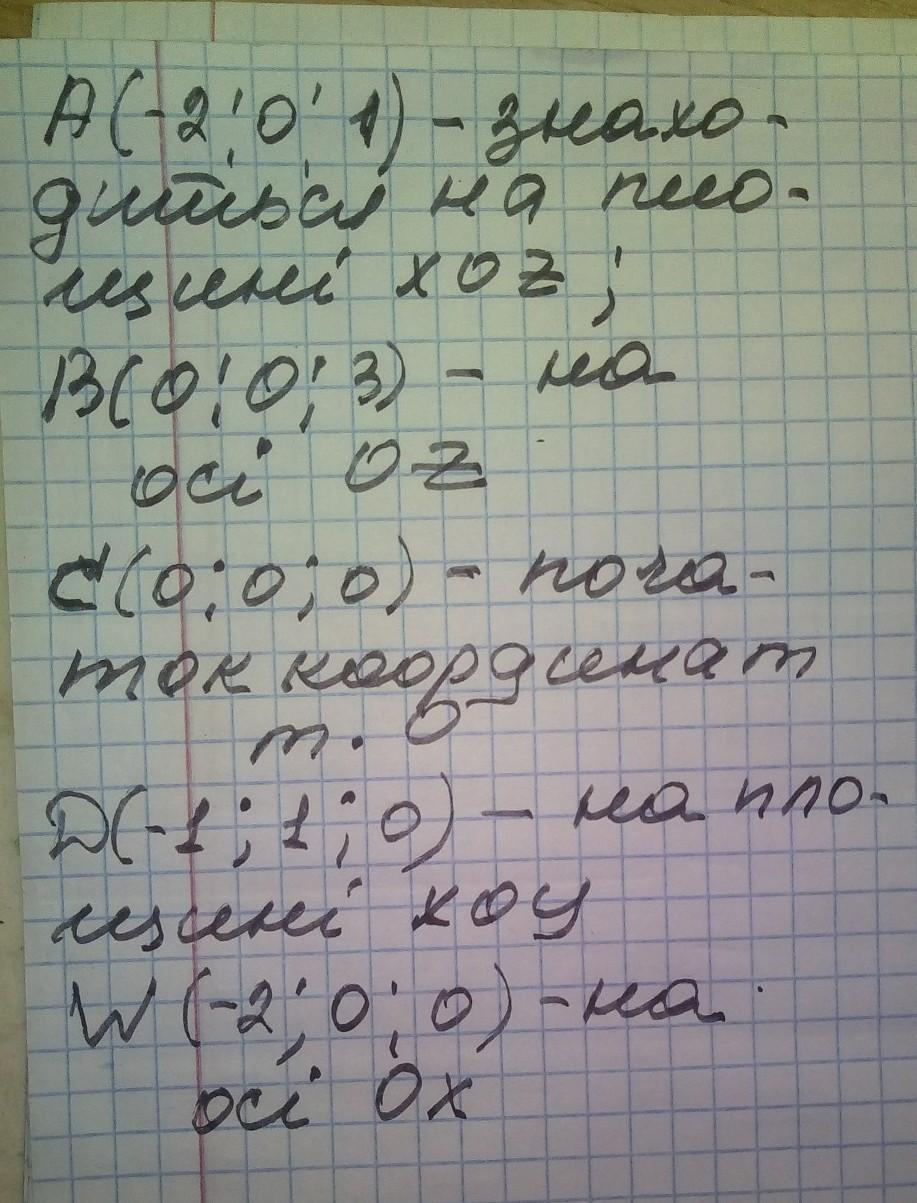 A(-2; 0; 1) - знахо-
диться на пло-
щині xoz;
B(0; 0; 3) - на
осі oz
C(0; 0; 0) - поча-
ток координат
т. О
D(-1; 1; 0) - на пло-
щині xoy
W (-2; 0; 0) - на
осі Ox